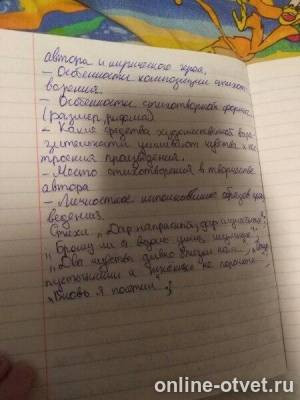 автора и лирического героя.
– Особенности композиции стихот
ворения.
– Особенности стихотворной формы
(размер, рифма)
– Какие средства художественной выра
зительности усиливают чувства и нас
троения произведения.
– Место стихотворения в творчестве
автора
– Личностное истолкование образов про
ведения.
Стихи „Дар напрасный, дар случайный"
„Брожу ли я вдоль улиц шумных"
„Два чувства дивно близки нам" „Отцы
пустынники и жены непорочны"
„Вновь я посетил"
online-otvet.ru